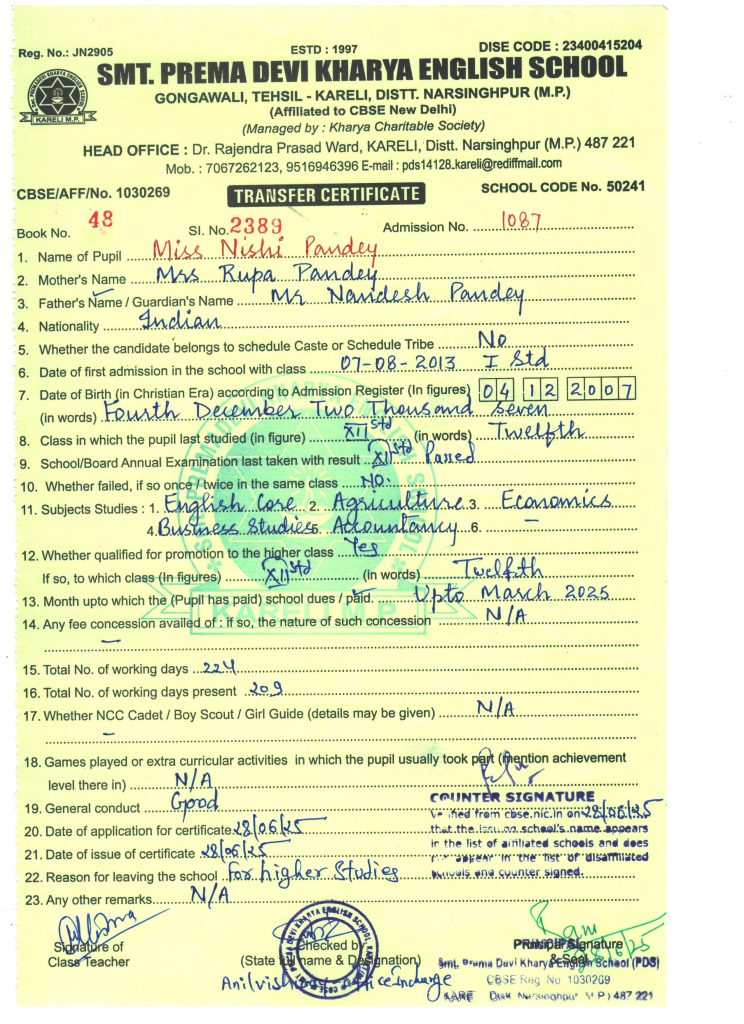 Reg. No.: JN2905 ESTD : 1997 DISE CODE : 23400415204
SMT. PREMA DEVI KHARYA ENGLISH SCHOOL
GONGAWALI, TEHSIL - KARELI, DISTT. NARSINGHPUR (M.P.)
(Affiliated to CBSE New Delhi)
(Managed by : Kharya Charitable Society)
KARELI M.P.
HEAD OFFICE : Dr. Rajendra Prasad Ward, KARELI, Distt. Narsinghpur (M.P.) 487 221
Mob. : 7067262123, 9516946396 E-mail : pds14128.kareli@rediffmail.com
CBSE/AFF/No. 1030269 TRANSFER CERTIFICATE SCHOOL CODE No. 50241
Book No. 48 Sl. No. 2389 Admission No. 1087
1. Name of Pupil Miss Nishi Pandey
2. Mother's Name Mrs Rupa Pandey
3. Father's Name / Guardian's Name Mr Nandesh Pandey
4. Nationality Indian
5. Whether the candidate belongs to schedule Caste or Schedule Tribe No
6. Date of first admission in the school with class 07-08-2013 I Std
7. Date of Birth (in Christian Era) according to Admission Register (In figures) 04 12 2007
(in words) Fourth December Two Thousand Seven
8. Class in which the pupil last studied (in figure) XII Std (in words) Twelfth
9. School/Board Annual Examination last taken with result XII Std Passed
10. Whether failed, if so once / twice in the same class No.
11. Subjects Studies : 1. English Core 2. Agriculture 3. Economics
4. Business Studies 5. Accountancy 6. –
12. Whether qualified for promotion to the higher class Yes
If so, to which class (In figures) XII Std (in words) Twelfth
13. Month upto which the (Pupil has paid) school dues / paid. Upto March 2025
KARELI M.P.
14. Any fee concession availed of : if so, the nature of such concession N/A
–
15. Total No. of working days 224
16. Total No. of working days present 209
17. Whether NCC Cadet / Boy Scout / Girl Guide (details may be given) N/A
–
18. Games played or extra curricular activities in which the pupil usually took part (mention achievement
level there in) N/A
COUNTER SIGNATURE
19. General conduct Good
Verified from cbse.nic.in on 28/06/25
20. Date of application for certificate 28/06/25
that the issuing school's name appears
in the list of affiliated schools and does
21. Date of issue of certificate 28/06/25
not appear in the list of disaffiliated
22. Reason for leaving the school for higher Studies
schools and counter signed.
23. Any other remarks N/A
Signature of
Class Teacher
Checked by
(State full name & Designation)
Office Incharge
Principal Signature
& Seal
PRINCIPAL
28/6/25
Smt. Prema Devi Kharya English School (PDS)
CBSE Reg No 1030269
Distt Narsinghpur (M P) 487 221